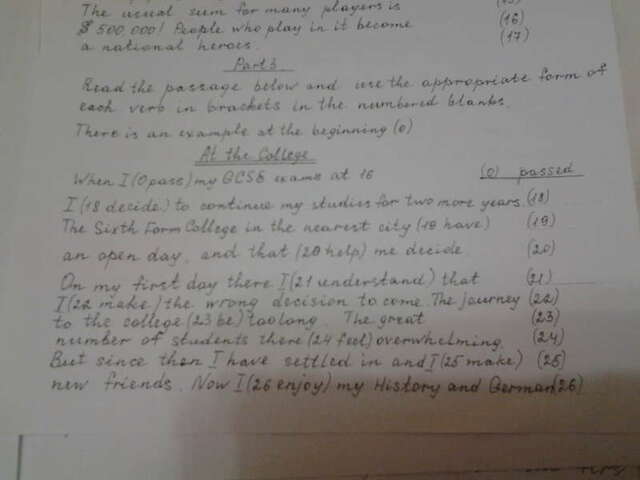 The usual sum for many players is (15)
$ 500,000! People who play in it become (16)
a national heroes. (17)
Part 3.
Read the passage below and use the appropriate form of
each verb in brackets in the numbered blanks.
There is an example at the beginning (0)
At the College
When I (0 pass) my GCSE exams at 16 (0) passed
I (18 decide) to continue my studies for two more years. (18)
The Sixth Form College in the nearest city (19 have) (19)
an open day, and that (20 help) me decide. (20)
On my first day there I (21 understand) that (21)
I (22 make) the wrong decision to come. The journey (22)
to the college (23 be) too long. The great (23)
number of students there (24 feel) overwhelming. (24)
But since then I have settled in and I (25 make) (25)
new friends. Now I (26 enjoy) my History and German (26)